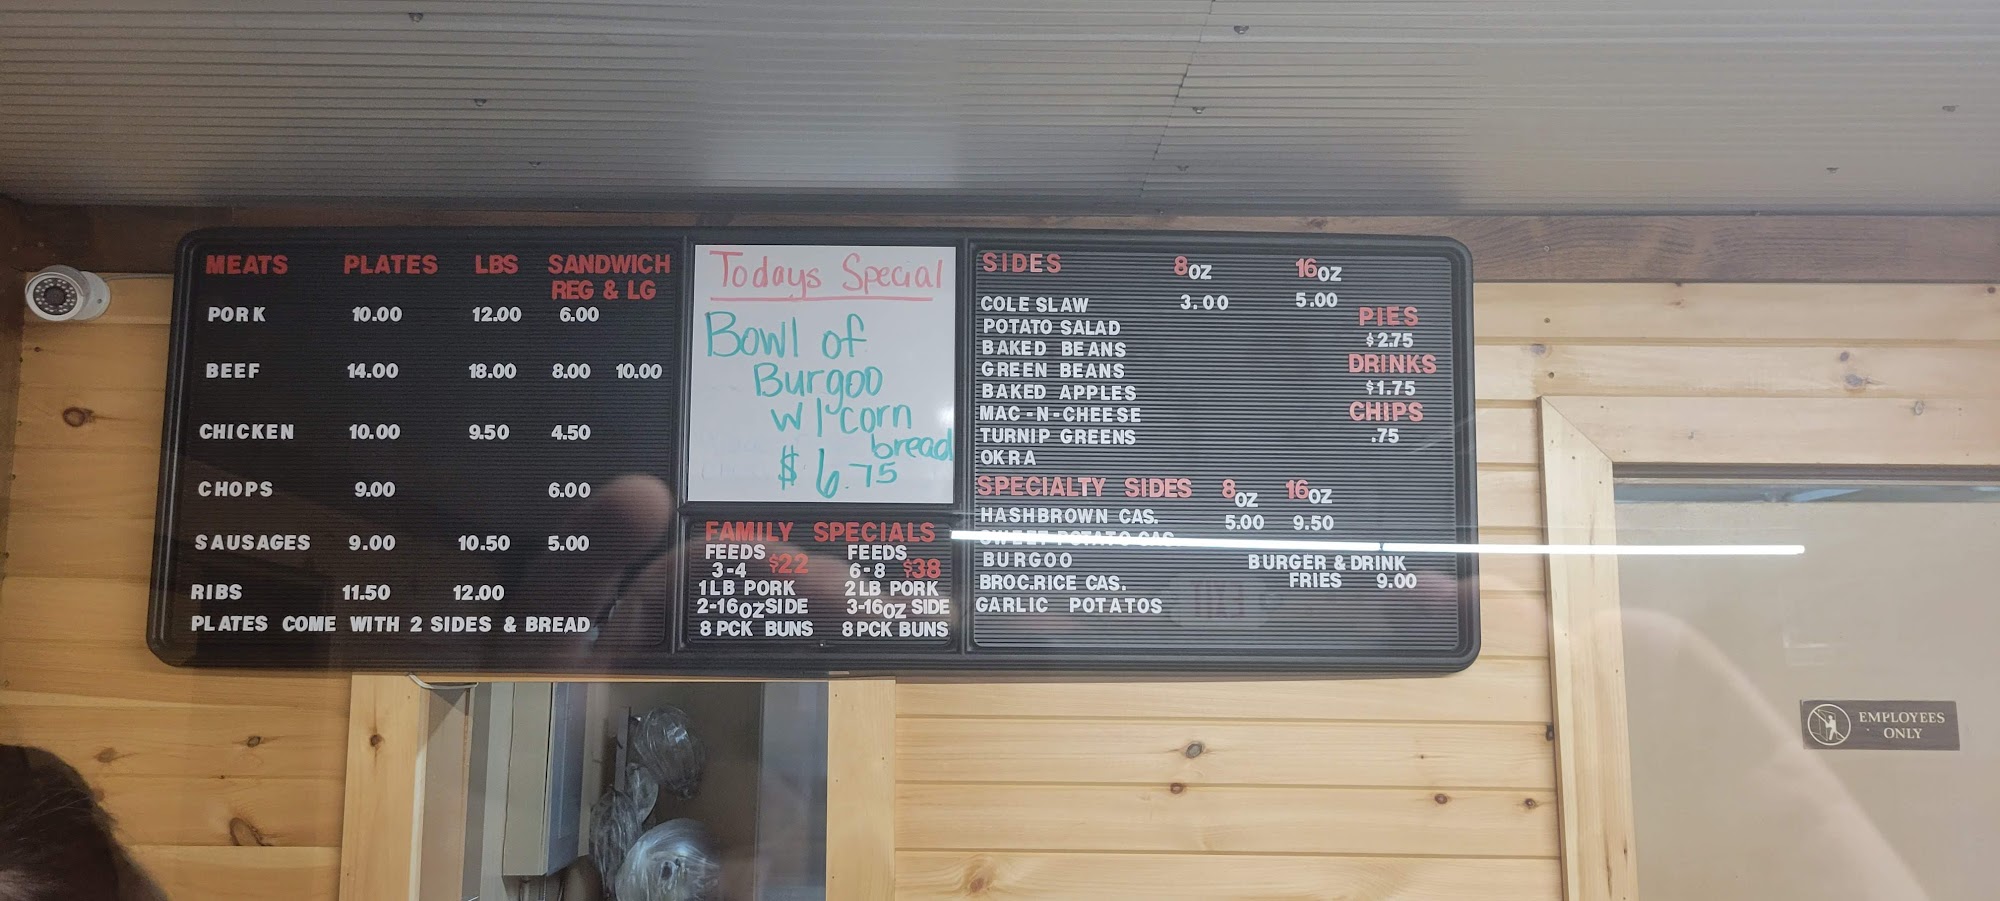 MEATS PLATES LBS SANDWICH
REG & LG
PORK 10.00 12.00 6.00
BEEF 14.00 18.00 8.00 10.00
CHICKEN 10.00 9.50 4.50
CHOPS 9.00 6.00
SAUSAGES 9.00 10.50 5.00
RIBS 11.50 12.00
PLATES COME WITH 2 SIDES & BREAD
Todays Special
Bowl of
Burgoo
w/ 1 corn
bread
$6.75
FAMILY SPECIALS
FEEDS
3-4 $22
1 LB PORK
2-16OZ SIDE
8 PCK BUNS
FEEDS
6-8 $38
2 LB PORK
3-16OZ SIDE
8 PCK BUNS
SIDES 8OZ 16OZ
COLE SLAW 3.00 5.00
POTATO SALAD
BAKED BEANS
GREEN BEANS
BAKED APPLES
MAC-N-CHEESE
TURNIP GREENS
OKRA
PIES
$2.75
DRINKS
$1.75
CHIPS
.75
SPECIALTY SIDES 8OZ 16OZ
HASHBROWN CAS. 5.00 9.50
SWEET POTATO CAS
BURGOO
BROC.RICE CAS.
GARLIC POTATOS
BURGER & DRINK
FRIES 9.00
EMPLOYEES
ONLY